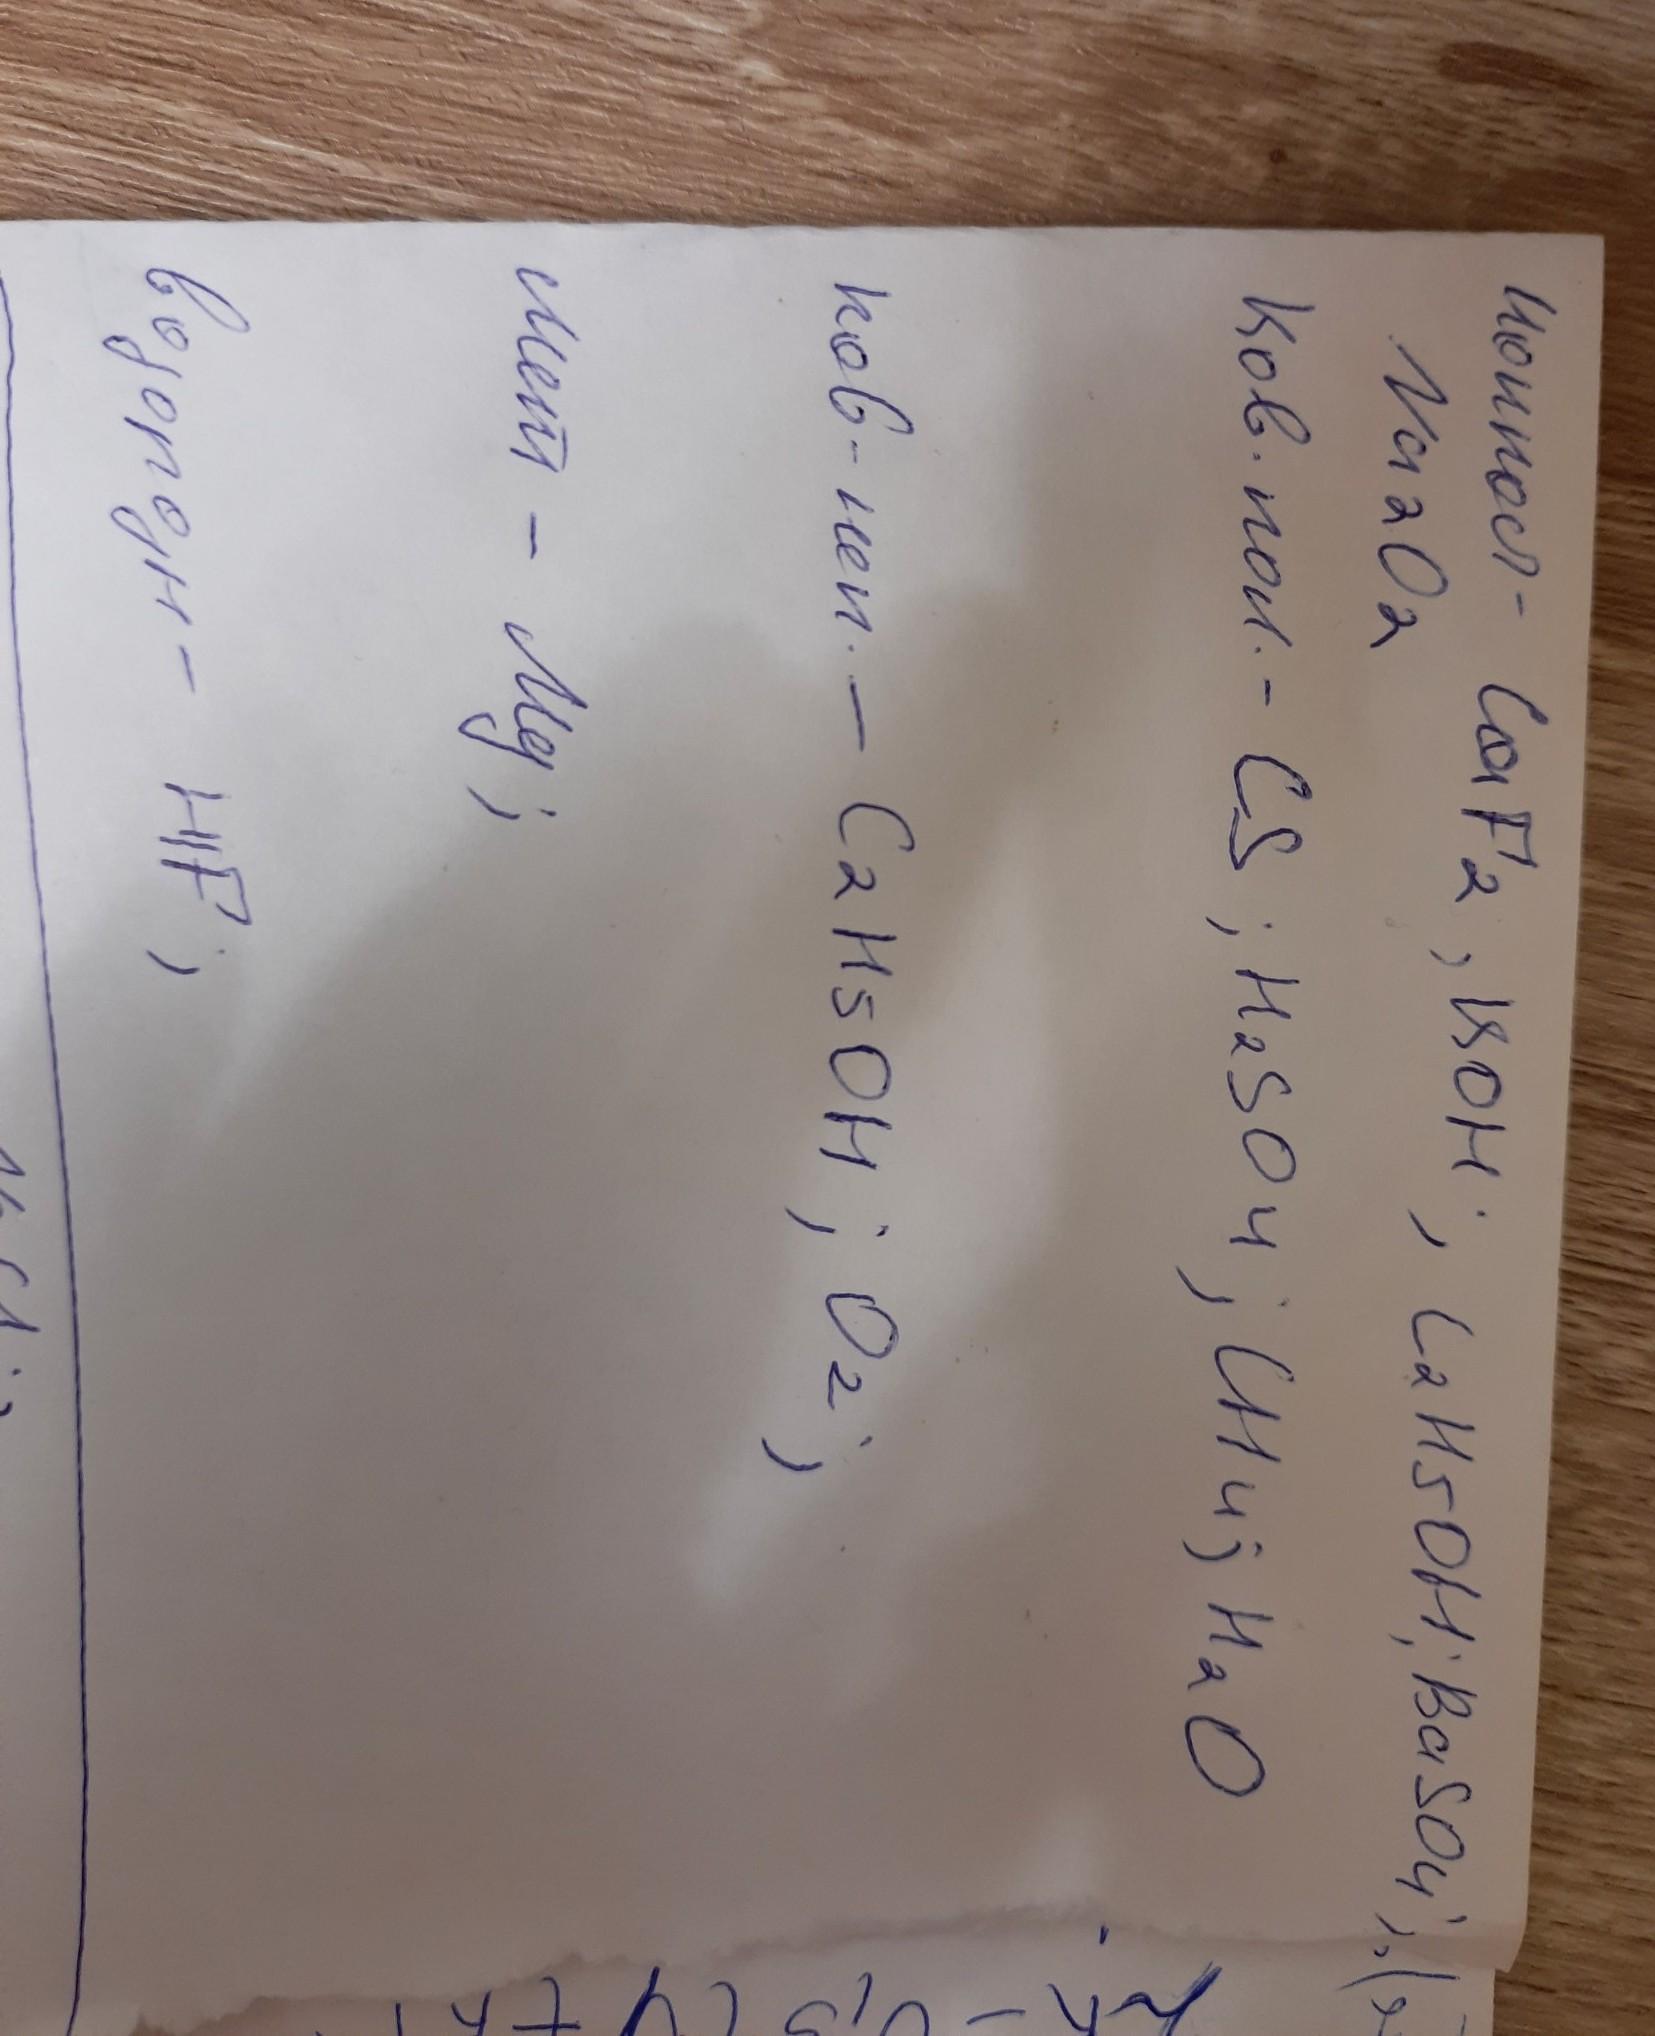 Ионносл- CaF2, KOH; C2H5OH; BaSO4;
Na2O2
Ков.пол.- CS; H2SO4; CH4; H2O
ков-неп. – C2H5OH; O2;
мет - Mg;
водородн- HF;